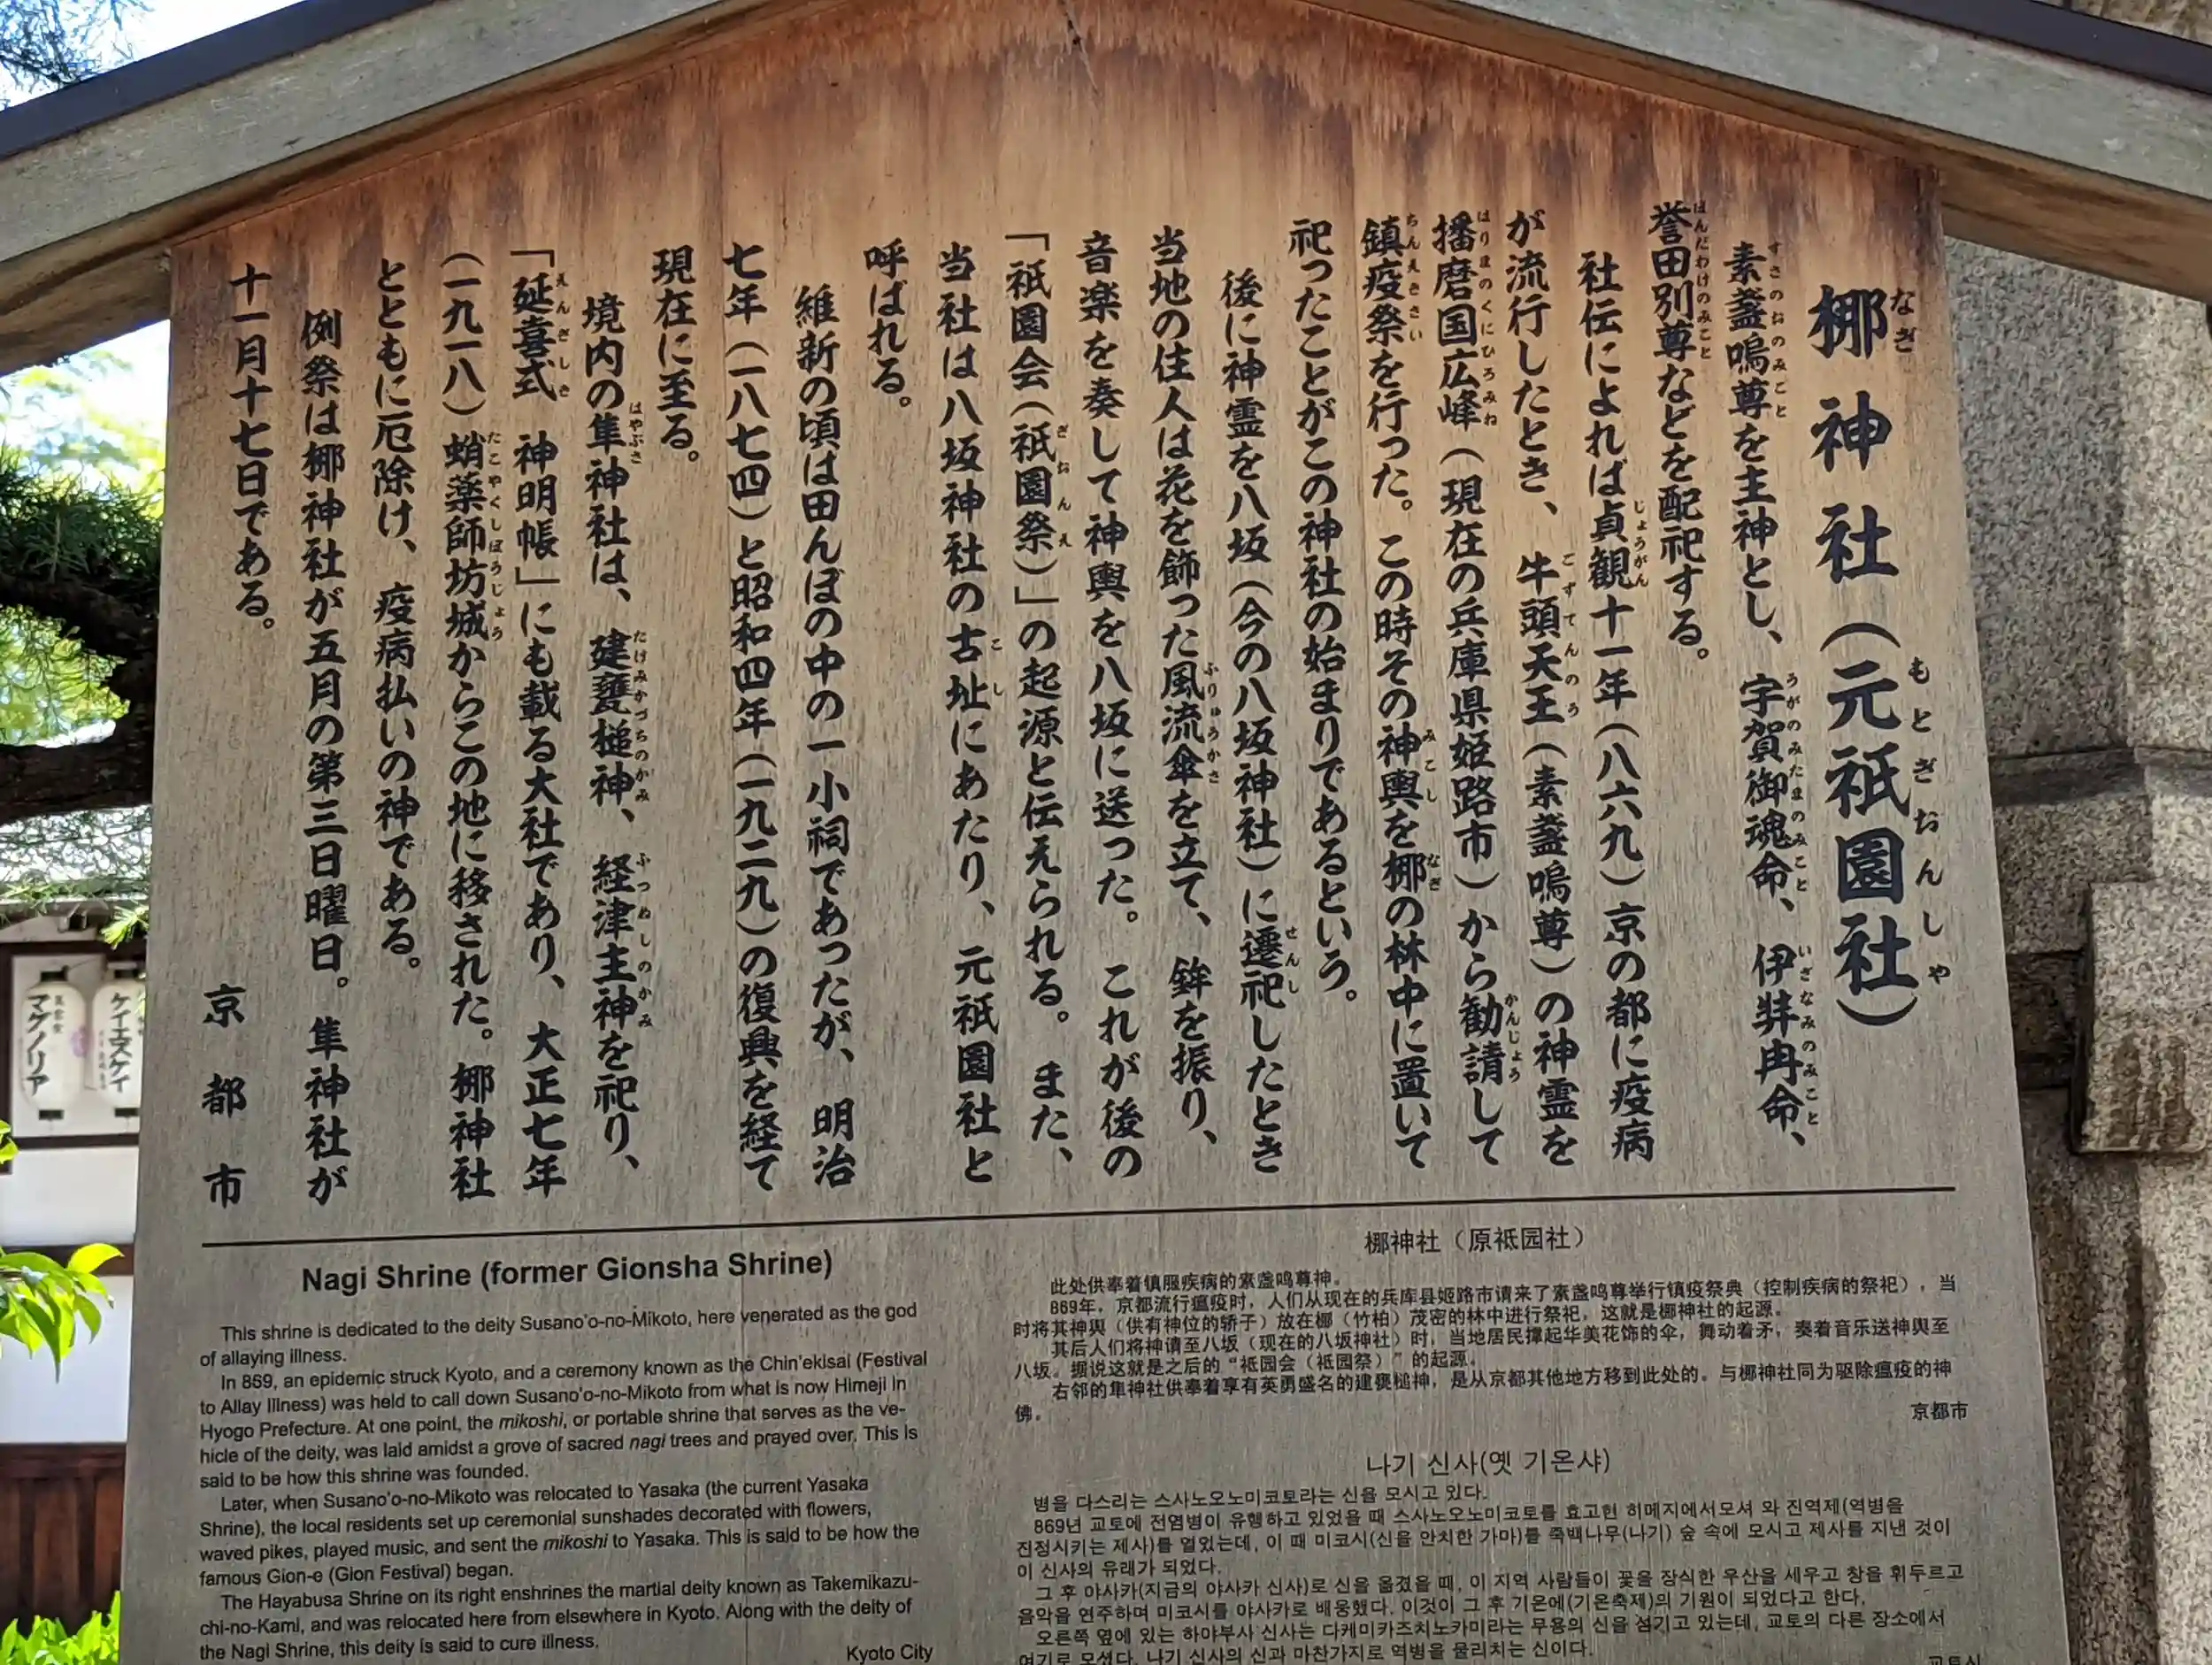 梛神社（元祇園社）
素盞嗚尊を主神とし、宇賀御魂命、伊弉冉命、
誉田別尊などを配祀する。
社伝によれば貞観十一年（八六九）京の都に疫病
が流行したとき、牛頭天王（素盞嗚尊）の神霊を
播磨国広峰（現在の兵庫県姫路市）から勧請して
鎮疫祭を行った。この時その神輿を梛の林中に置いて
祀ったことがこの神社の始まりであるという。
後に神霊を八坂（今の八坂神社）に遷祀したとき
当地の住人は花を飾った風流傘を立て、鉾を振り、
音楽を奏して神輿を八坂に送った。これが後の
「祇園会（祇園祭）」の起源と伝えられる。また、
当社は八坂神社の古址にあたり、元祇園社と
呼ばれる。
維新の頃は田んぼの中の一小祠であったが、明治
七年（一八七四）と昭和四年（一九二九）の復興を経て
現在に至る。
境内の隼神社は、建甕槌神、経津主神を祀り、
「延喜式　神明帳」にも載る大社であり、大正七年
（一九一八）蛸薬師坊城からこの地に移された。梛神社
とともに厄除け、疫病払いの神である。
例祭は梛神社が五月の第三日曜日。隼神社が
十一月十七日である。
京都市
Nagi Shrine (former Gionsha Shrine)
This shrine is dedicated to the deity Susano'o-no-Mikoto, here venerated as the god
of allaying illness.
In 869, an epidemic struck Kyoto, and a ceremony known as the Chin'ekisai (Festival
to Allay Illness) was held to call down Susano'o-no-Mikoto from what is now Himeji in
Hyogo Prefecture. At one point, the mikoshi, or portable shrine that serves as the ve-
hicle of the deity, was laid amidst a grove of sacred nagi trees and prayed over. This is
said to be how this shrine was founded.
Later, when Susano'o-no-Mikoto was relocated to Yasaka (the current Yasaka
Shrine), the local residents set up ceremonial sunshades decorated with flowers,
waved pikes, played music, and sent the mikoshi to Yasaka. This is said to be how the
famous Gion-e (Gion Festival) began.
The Hayabusa Shrine on its right enshrines the martial deity known as Takemikazu-
chi-no-Kami, and was relocated here from elsewhere in Kyoto. Along with the deity of
the Nagi Shrine, this deity is said to cure illness.
Kyoto City
梛神社（原祇园社）
此处供奉着镇服疾病的素盏鸣尊神。
869年，京都流行瘟疫时，人们从现在的兵库县姬路市请来了素盏鸣尊举行镇疫祭典（控制疾病的祭祀），当
时将其神舆（供有神位的轿子）放在梛（竹柏）茂密的林中进行祭祀，这就是梛神社的起源。
其后人们将神请至八坂（现在的八坂神社）时，当地居民撑起华美花饰的伞，舞动着矛，奏着音乐送神舆至
八坂。据说这就是之后的“祇园会（祇园祭）”的起源。
右邻的隼神社供奉着享有英勇盛名的建甕槌神，是从京都其他地方移到此处的。与梛神社同为驱除瘟疫的神
佛。
京都市
나기 신사(옛 기온샤)
병을 다스리는 스사노오노미코토라는 신을 모시고 있다.
869년 교토에 전염병이 유행하고 있었을 때 스사노오노미코토를 효고현 히메지에서모셔 와 진역제(역병을
진정시키는 제사)를 열었는데, 이 때 미코시(신을 안치한 가마)를 죽백나무(나기) 숲 속에 모시고 제사를 지낸 것이
이 신사의 유래가 되었다.
그 후 야사카(지금의 야사카 신사)로 신을 옮겼을 때, 이 지역 사람들이 꽃을 장식한 우산을 세우고 창을 휘두르고
음악을 연주하며 미코시를 야사카로 배웅했다. 이것이 그 후 기온에(기온축제)의 기원이 되었다고 한다.
오른쪽 옆에 있는 하야부사 신사는 다케미카즈치노카미라는 무용의 신을 섬기고 있는데, 교토의 다른 장소에서
여기로 모셨다. 나기 신사의 신과 마찬가지로 역병을 물리치는 신이다.
교토시
ケイエスケイ
マグノリア